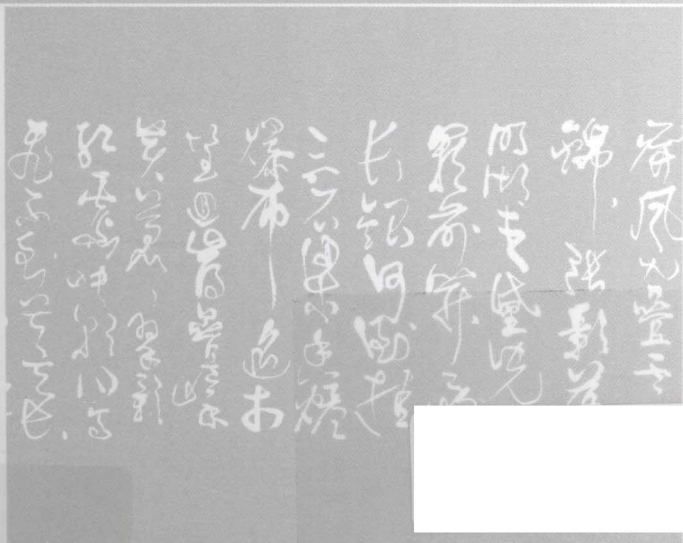 屏風九疊雲
錦張影落
明湖青黛光
闕前開
長銀河倒挂
三石梁香爐
瀑布遙相
望迴崖沓嶂凌
蒼蒼翠影
紅霞映朝日鳥
飛不到吳天長